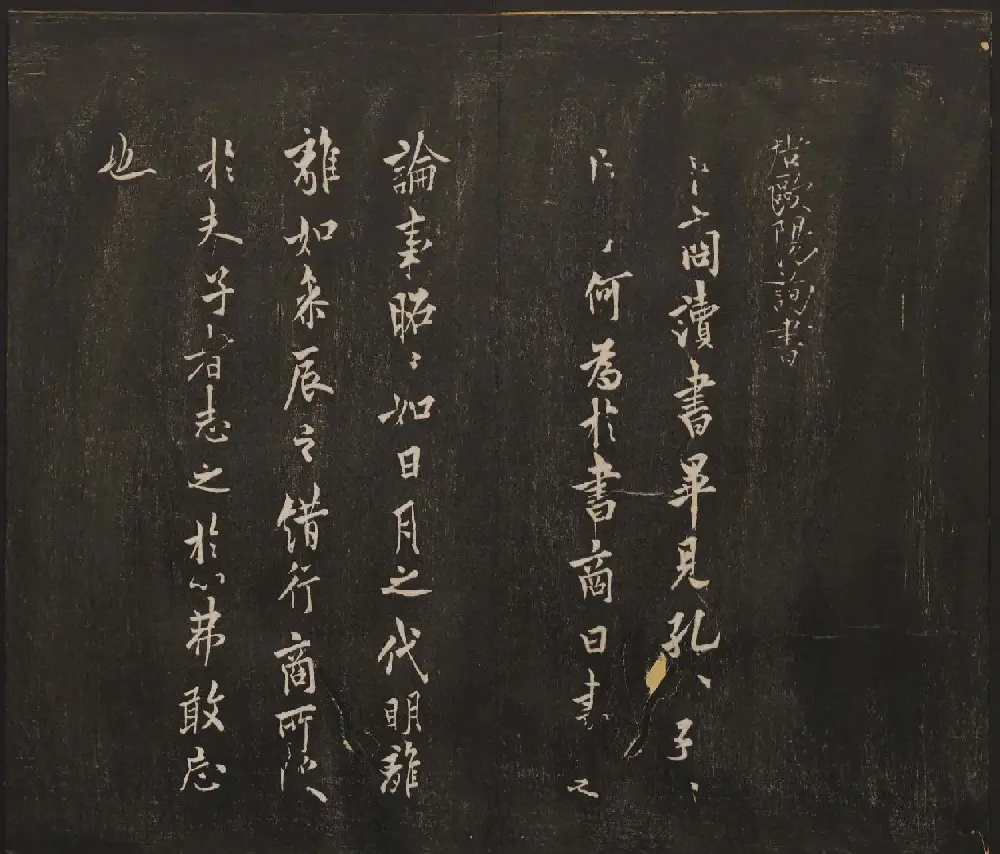 唐歐陽詢書
卜商讀書畢見孔〻子〻
何為於書商曰書之
論事昭〻如日月之代明離
離如參辰之錯行商所受
於夫子者志之於心弗敢忘
也